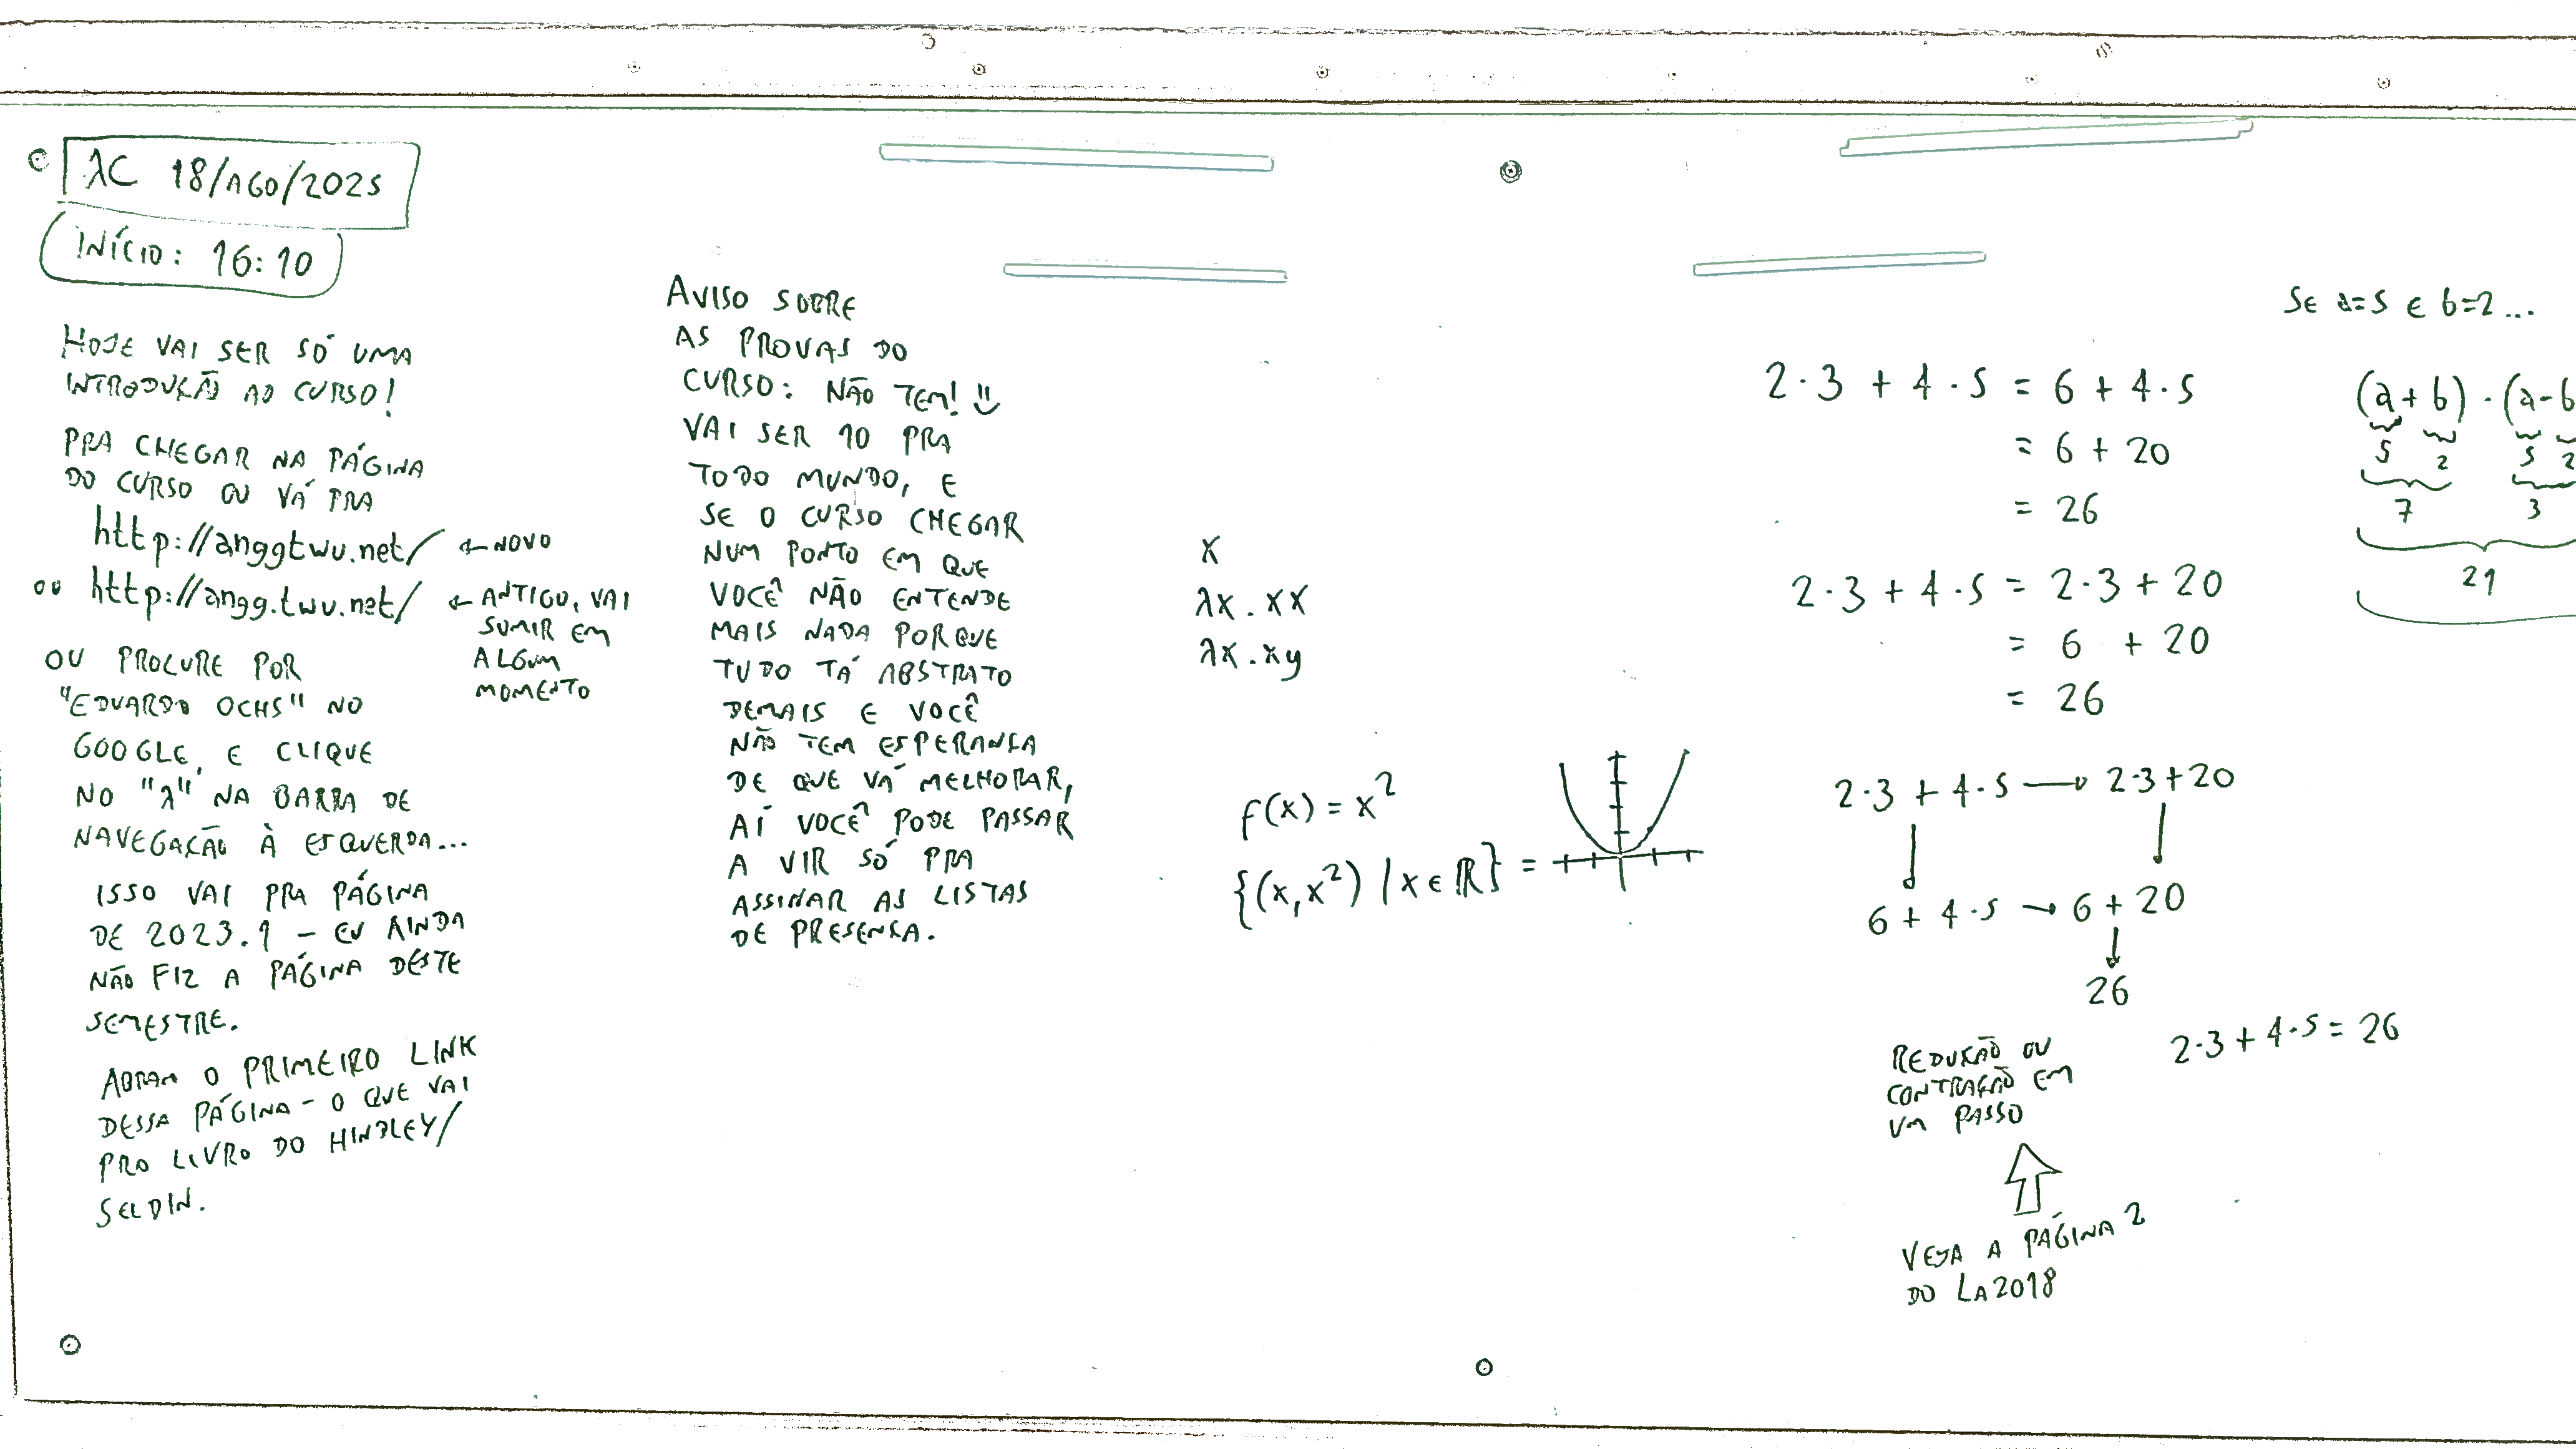 λC 18/AGO/2025
INÍCIO: 16:10
HOJE VAI SER SÓ UMA
INTRODUÇÃO AO CURSO!
PRA CHEGAR NA PÁGINA
DO CURSO OU VÁ PRA
http://anggtwu.net/ ← NOVO
ou http://angg.twu.net/ ← ANTIGO, VAI
SUMIR EM
ALGUM
MOMENTO
OU PROCURE POR
"EDUARDO OCHS" NO
GOOGLE, E CLIQUE
NO "λ" NA BARRA DE
NAVEGAÇÃO À ESQUERDA...
ISSO VAI PRA PÁGINA
DE 2023.1 – EU AINDA
NÃO FIZ A PÁGINA DESTE
SEMESTRE.
ABRAM O PRIMEIRO LINK
DESSA PÁGINA – O QUE VAI
PRO LIVRO DO HINDLEY/
SELDIN.
AVISO SOBRE
AS PROVAS DO
CURSO: NÃO TEM! :)
VAI SER 10 PRA
TODO MUNDO, E
SE O CURSO CHEGAR
NUM PONTO EM QUE
VOCÊ NÃO ENTENDE
MAIS NADA PORQUE
TUDO TÁ ABSTRATO
DEMAIS E VOCÊ
NÃO TEM ESPERANÇA
DE QUE VÁ MELHORAR,
AÍ VOCÊ PODE PASSAR
A VIR SÓ PRA
ASSINAR AS LISTAS
DE PRESENÇA.
x
λx.xx
λx.xy
f(x) = x²
{(x,x²) | x ∈ ℝ} =
2·3 + 4·5 = 6 + 4·5
= 6 + 20
= 26
2·3 + 4·5 = 2·3 + 20
= 6 + 20
= 26
2·3 + 4·5 → 2·3 + 20
↓ ↓
6 + 4·5 → 6 + 20
↓
26
2·3 + 4·5 = 26
REDUÇÃO OU
CONTRAÇÃO EM
UM PASSO
⇧
VEJA A PÁGINA 2
DO LA2018
SE a=5 E b=2...
(a+b)·(a-b
5 2 5 2
7 3
21